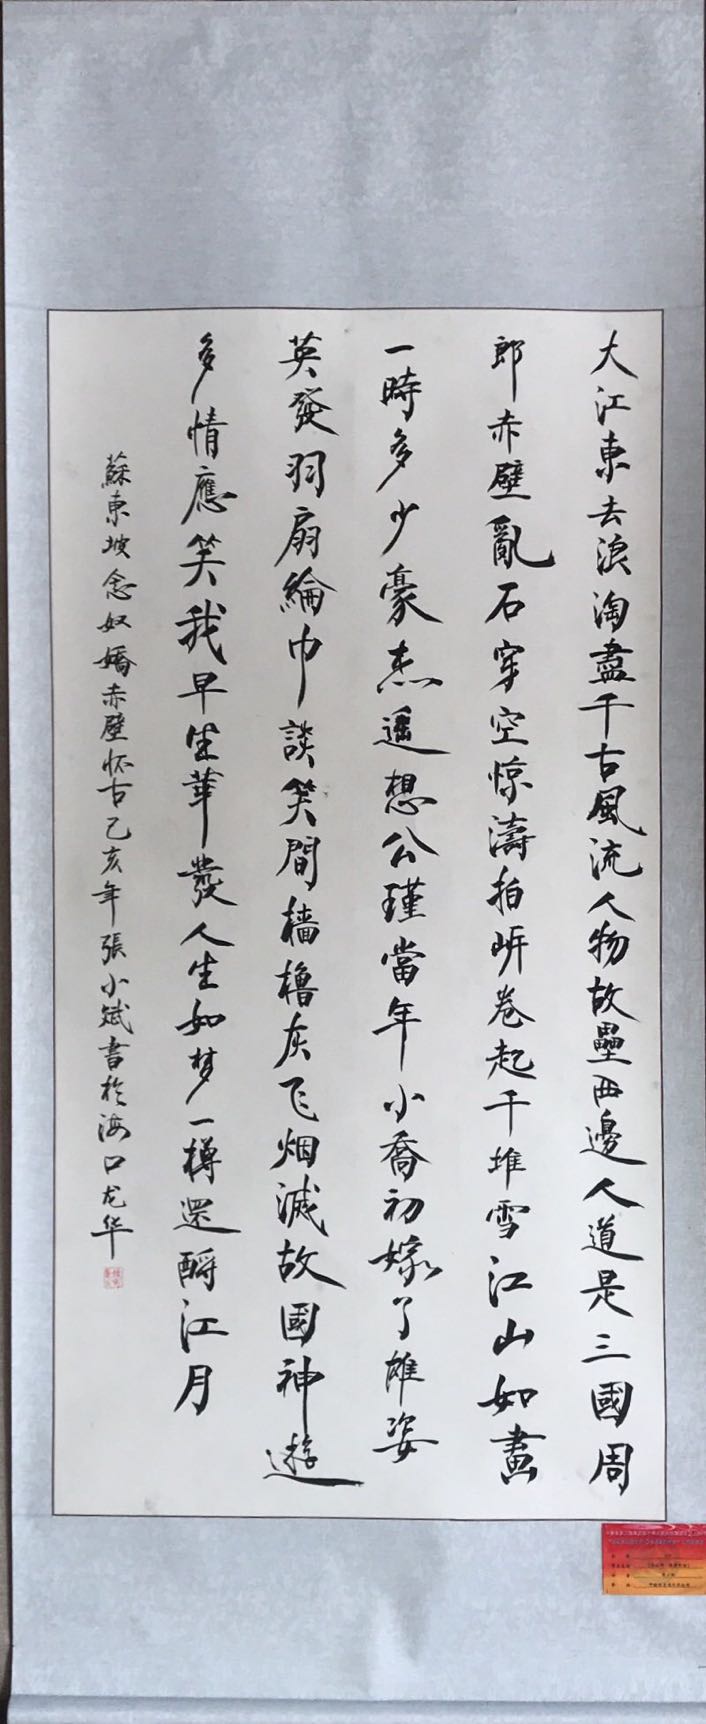 大江東去浪淘盡千古風流人物故壘西邊人道是三國周
郎赤壁亂石穿空惊濤拍岍卷起千堆雪江山如畫
一時多少豪杰遥想公瑾當年小喬初嫁了雄姿
英發羽扇綸巾談笑間檣櫓灰飞烟滅故國神遊
多情應笑我早生華發人生如梦一樽還酹江月
蘇東坡念奴嬌赤壁怀古乙亥年張小斌書於海口龙华